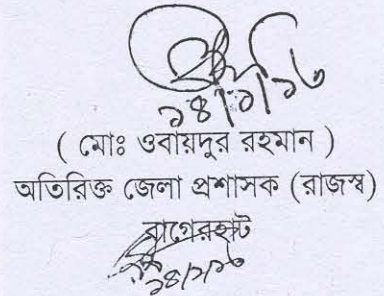 ১৪/১/১৬
( মোঃ ওবায়দুর রহমান )
অতিরিক্ত জেলা প্রশাসক (রাজস্ব)
বাগেরহাট
১৪/১/১৬